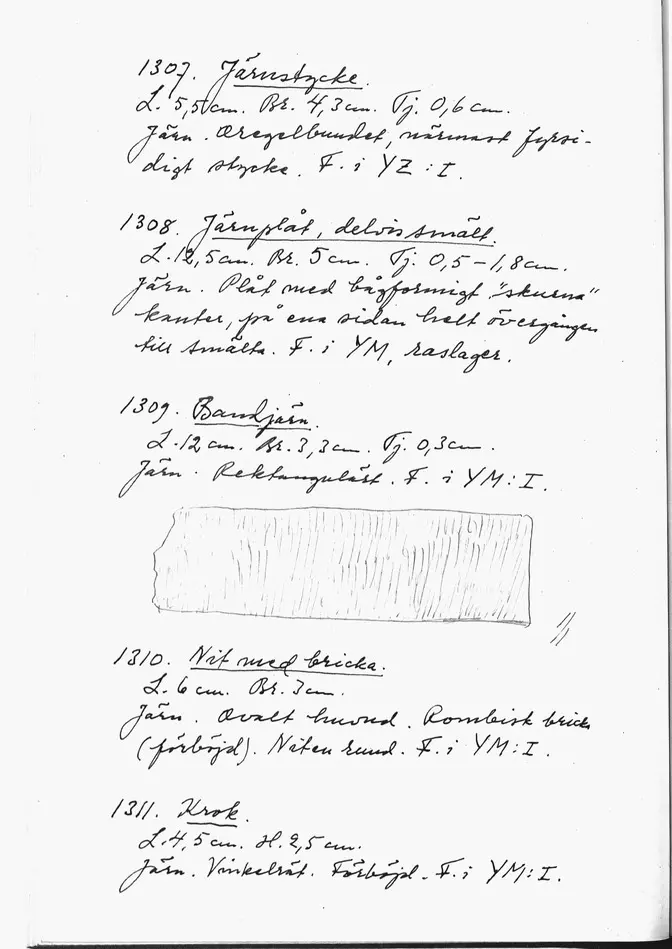 1307. Järnstycke.
L. 5,5 cm. Br. 4,3 cm. Tj. 0,6 cm.
Järn. Oregelbundet, närmast fyrsi-
digt stycke. F. i YZ : I.
1308. Järnplåt, delvis smält.
L. 12,5 cm. Br. 5 cm. Tj. 0,5 – 1,8 cm.
Järn. Plåt med bågformigt "skurna"
kanter, på ena sidan helt övergången
till smälta. F. i YM, raslager.
1309. Bandjärn.
L. 12 cm. Br. 3,3 cm. Tj. 0,3 cm.
Järn. Rektangulärt. F. i YM : I.
1/1
1310. Nit med bricka.
L. 6 cm. Br. 3 cm.
Järn. Ovalt huvud. Rombisk bricka
(förböjd). Niten rund. F. i YM : I.
1311. Krok.
L. 4,5 cm. H. 2,5 cm.
Järn. Vinkelrät. Förböjd. F. i YM : I.